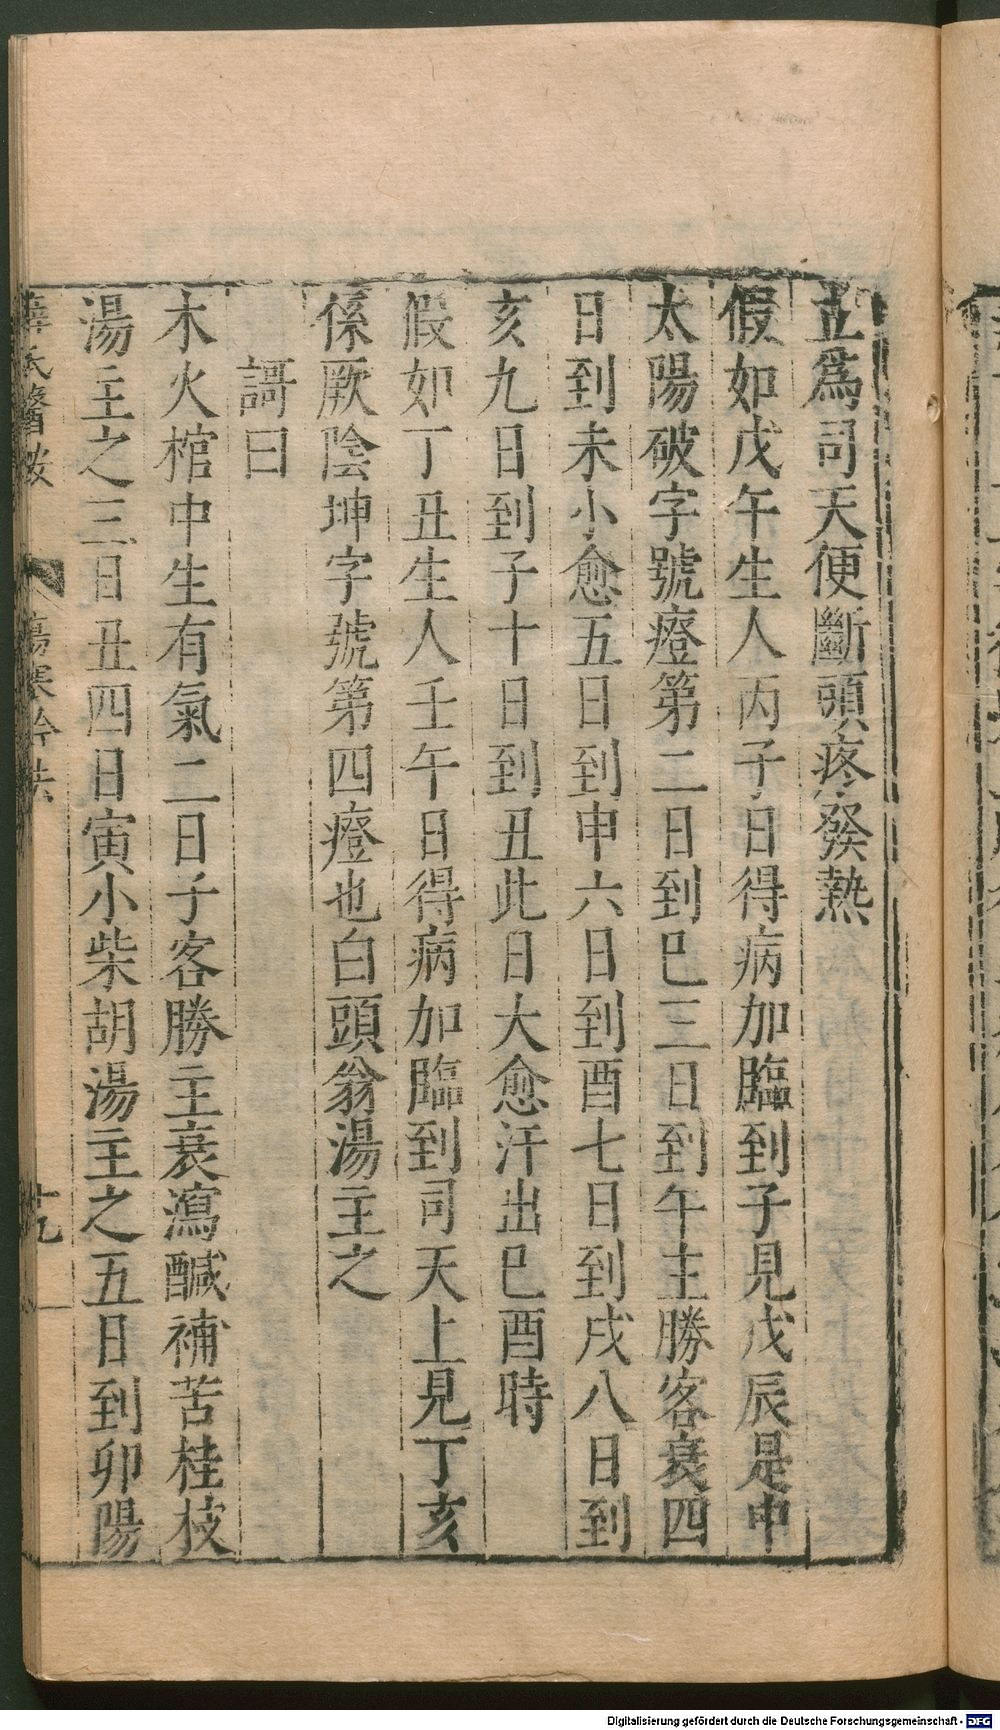 正爲司天便斷頭疼發熱
假如戊午生人丙子日得病加臨到子見戊辰是申
太陽破字號證第二日到巳三日到午主勝客衰四
日到未小愈五日到申六日到酉七日到戌八日到
亥九日到子十日到丑此日大愈汗出巳酉時
假如丁丑生人壬午日得病加臨到司天上見丁亥
係厥陰坤字號第四證也白頭翁湯主之
謌曰
木火棺中生有氣二日子客勝主衰瀉醎補苦桂枝
湯主之三日丑四日寅小柴胡湯主之五日到卯陽
薛氏醫案 傷寒鈐法 十九
Digitalisierung gefördert durch die Deutsche Forschungsgemeinschaft - DFG